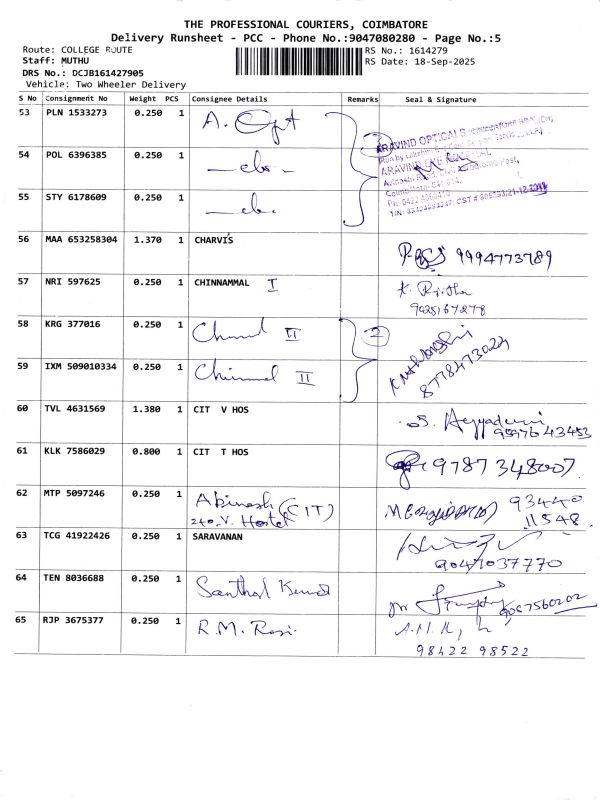 THE PROFESSIONAL COURIERS, COIMBATORE
Delivery Runsheet - PCC - Phone No.:9047080280 - Page No.:5
Route: COLLEGE ROUTE RS No.: 1614279
Staff: MUTHU RS Date: 18-Sep-2025
DRS No.: DCJB161427905
Vehicle: Two Wheeler Delivery
S No Consignment No Weight PCS Consignee Details Remarks Seal & Signature
53 PLN 1533273 0.250 1 A. Opt
ARAVIND OPTICALS
54 POL 6396385 0.250 1
ARAVIND EYE HOSPITAL
55 STY 6178609 0.250 1
56 MAA 653258304 1.370 1 CHARVIS 9994773789
57 NRI 597625 0.250 1 CHINNAMMAL I
58 KRG 377016 0.250 1 II 2
59 IXM 509010334 0.250 1 II 8778473024
60 TVL 4631569 1.380 1 CIT V HOS
61 KLK 7586029 0.800 1 CIT T HOS 9787348007.
62 MTP 5097246 0.250 1 Abinash (CIT) 93440
240. V. Hostel 11548.
63 TCG 41922426 0.250 1 SARAVANAN
9047037770
64 TEN 8036688 0.250 1 Santhal 9087560202
65 RJP 3675377 0.250 1 R.M. Rasi.
98422 98522